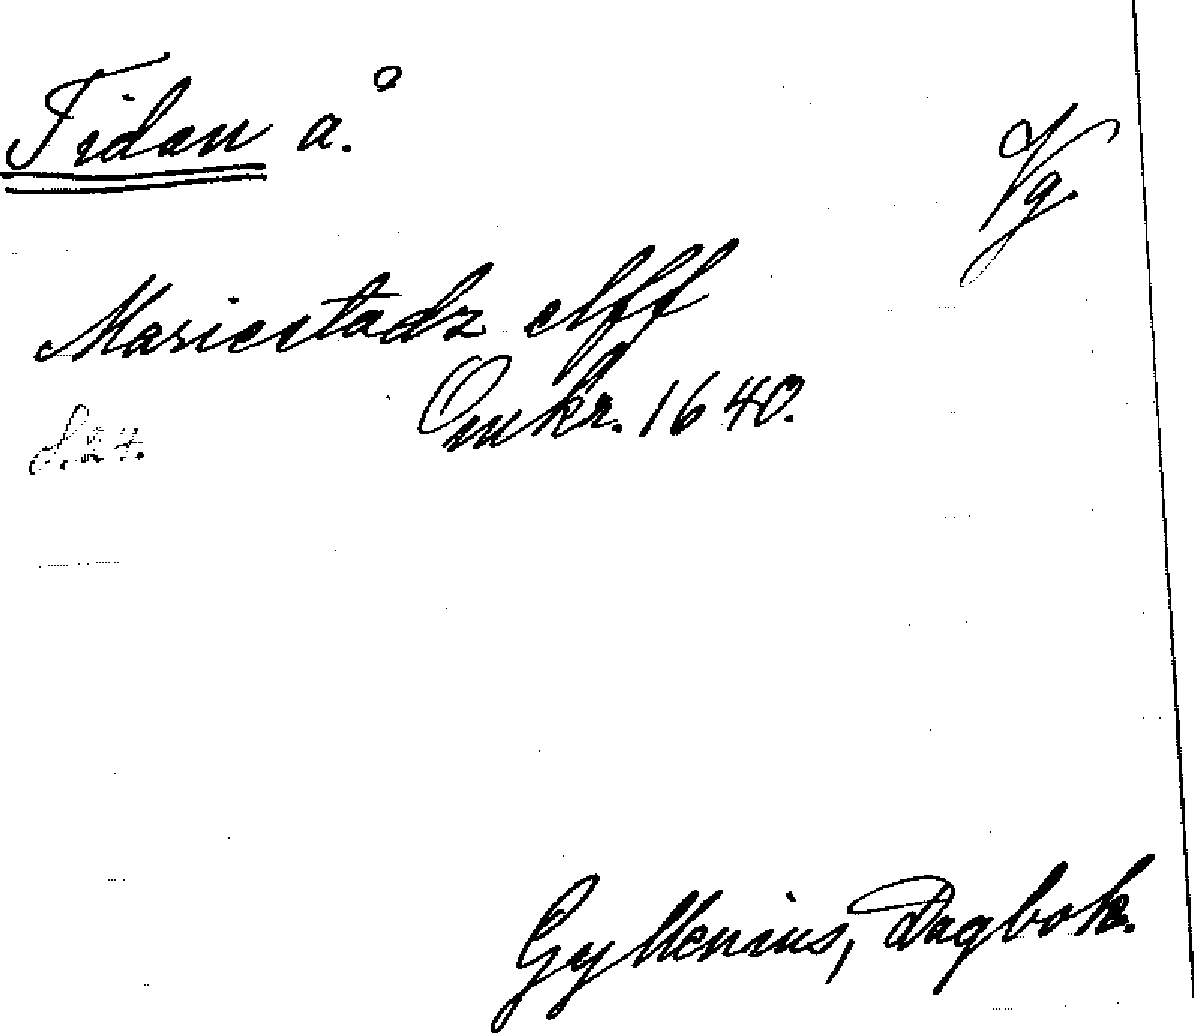 Tidan å.
Vg.
Mariestadz elff
Omkr. 1640.
S. 24.
Gyllenius, Dagbok.